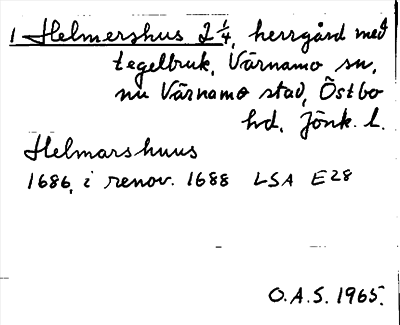 1 Helmershus 2 1/4, herrgård med
tegelbruk, Värnamo sn,
nu Värnamo stad, Östbo
hd, Jönk. l.
Helmarshuus
1686, i renov. 1688 LSA E28
O.A.S. 1965.